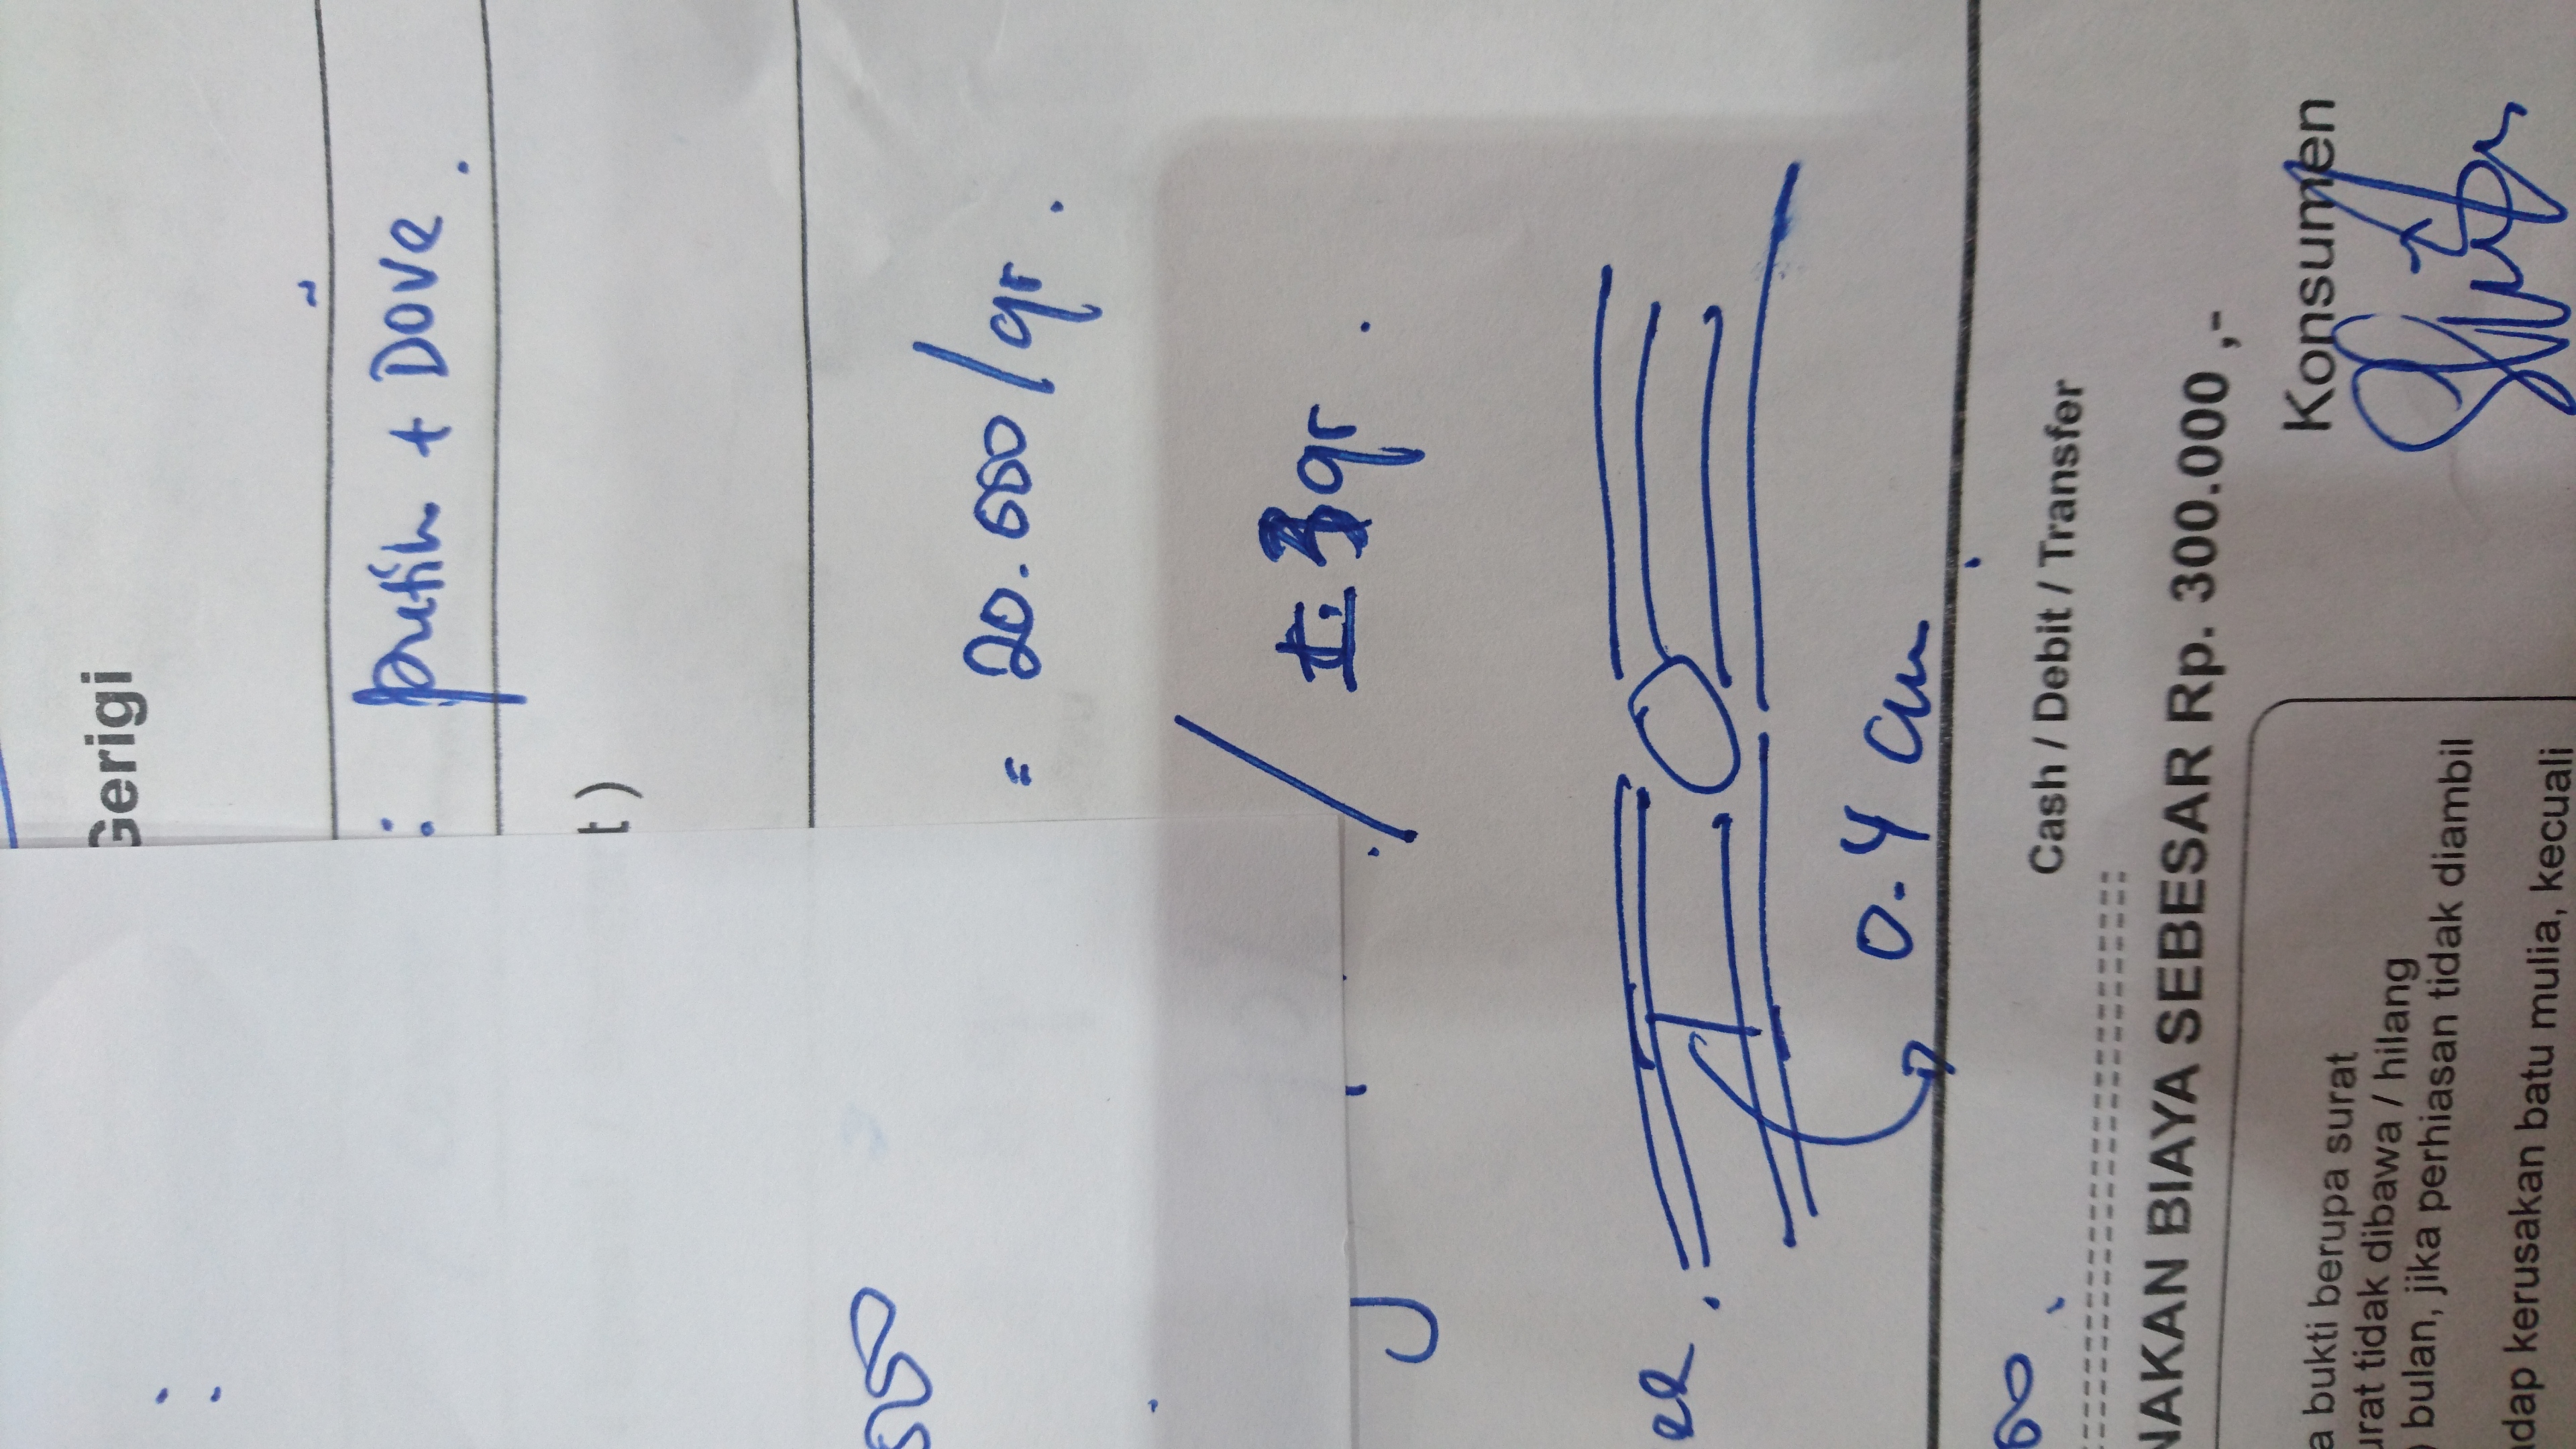 Gerigi
:
: putih + Dove.
t )
= 20.000/gr.
/ ± 3 gr.
0.4 cm
Cash / Debit / Transfer
NAKAN BIAYA SEBESAR Rp. 300.000 ,-
Konsumen
a bukti berupa surat
urat tidak dibawa / hilang
) bulan, jika perhiasan tidak diambil
adap kerusakan batu mulia, kecuali